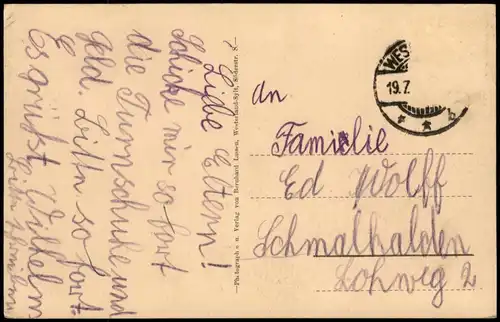 Liebe Eltern!
Schicke mir so fort
die Turnschuhe und
Geld. Bitte so fort.
Es grüßt Wilhelm
Bitte schreiben
Photographie u. Verlag von Bernhard Lassen, Westerland-Sylt, Bäderstr. 8.
WES
19.7.
b
An
Familie
Ed Wolff
Schmalkalden
Lohweg 2